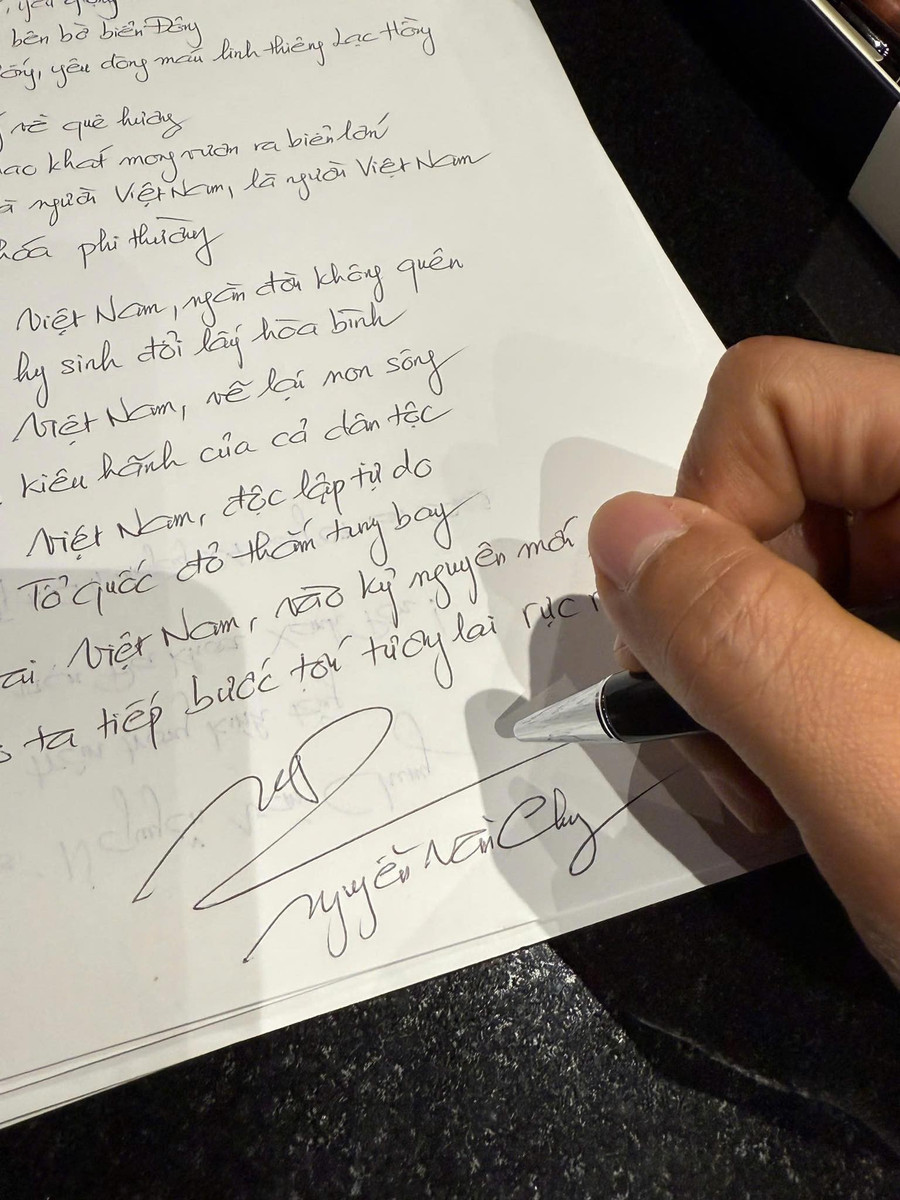 , yêu
bên bờ biển Đông
yêu dòng máu linh thiêng Lạc Hồng
về quê hương
khát mong vươn ra biển lớn
là người Việt Nam, là người Việt Nam
hóa phi thường
Việt Nam, ngàn đời không quên
hy sinh đổi lấy hòa bình
Việt Nam, vẽ lại non sông
kiêu hãnh của cả dân tộc
Việt Nam, độc lập tự do
Tổ quốc đỏ thắm tung bay
Việt Nam, vào kỷ nguyên mới
ta tiếp bước tới tương lai rực
Nguyễn Văn Chung